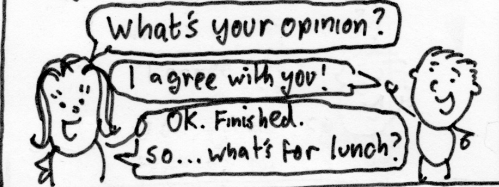 What's your opinion?
I agree with you!
OK. Finished.
So... what's for lunch?